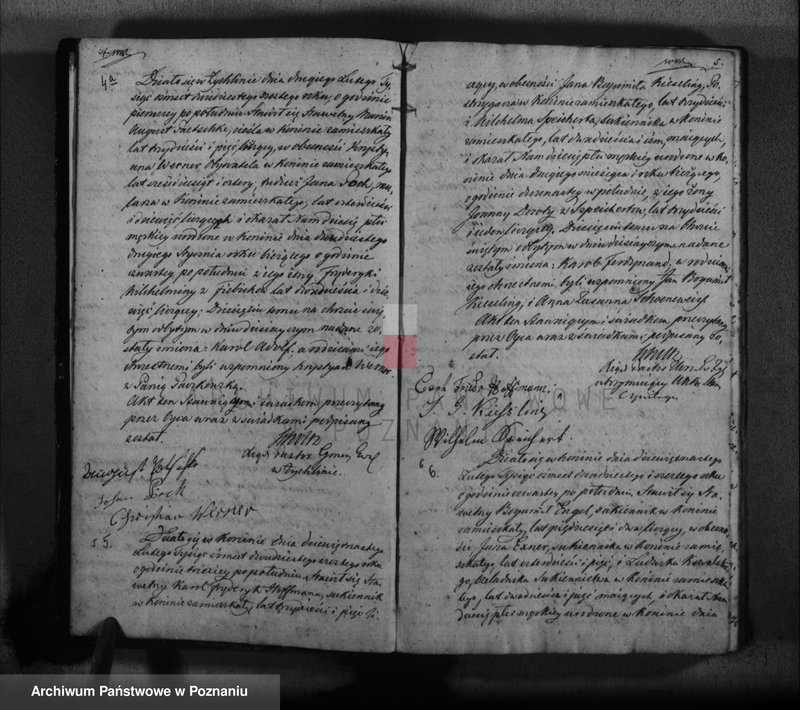 4a
Działo się w Żychlinie dnia drugiego Lutego Ty-
siąc ośmset dwudziestego szostego roku, o godzinie
pierwszej po południu. Stawił się Stawetny
August cieśla w Koninie zamieszkały
lat trzydzieści i pięć liczący, w obecności Krysty-
iana Werner Obywatela w Koninie zamieszkałego
lat sześćdziesiąt i cztery, tudzież Jana
w Koninie zamieszkałego, lat czterdzieści
i dziewięć liczących i okazał Nam dziecię płci
męzkiej urodzone w Koninie dnia dwudziestego
drugiego Stycznia roku bieżącego o godzinie
czwartej po południu z iego żony Fryderyki
Wilhelminy z lat dwadzieścia i dzie-
więć liczący. Dziecięciu temu na chrzcie świę-
tym odbytym w dniu dzisiejszym nadane zo-
stały imiona: Karol Adolf, a rodzicami iego
chrzestnemi byli wspomniony Krystyan Werner
z Panną
Akt ten Stawaiącym i świadkom przeczytany
przez Oyca wraz z świadkami podpisany
został.
w Żychlinie.
Johan
Christian Werner
5 5. Działo się w Koninie dnia dziewiętnastego
Lutego Tysiąc ośmset dwudziestego szostego roku
o godzinie trzeciey po południu. Stawił się Sta-
wetny Karol Fryderyk Hoffmann, sukiennik
w Koninie zamieszkały, lat trzydzieści i pięć li-
5.
czący, w obecności Jana Bogumiła Kieseling, Po-
strzygacza w Koninie zamieszkałego, lat trzydzieści
i Wilhelma Speicherta, sukiennika w Koninie
zamieszkałego, lat dwadzieścia i ośm, maiących,
i okazał Nam dziecię płci męzkiej urodzone w Ko-
ninie dnia drugiego miesiąca i roku bieżącego,
o godzinie dwunastey w południe, z iego żony
Joanny Doroty z Speichertow, lat trzydzieści
i ieden liczącey. Dziecięciu temu na Chrzcie
świętym odbytym w dniu dzisiayszym, nadane
zostały imiona: Karol Ferdynand, a rodzicami
iego chrzestnemi byli wspomniony Jan Bogumił
Kieseling, i Anna Zuzanna
Akt ten Stawaiącym i świadkom, przeczytany
przez Oyca wraz z świadkami podpisany zo-
stał.
utrzymuiący Akta Stanu
Cywilnego
Carl Friedr Hoffmann.
J. G. Kiesling
Wilhelm Speichert.
6 6. Działo się w Koninie dnia dziewiętnastego
Lutego Tysiąc ośmset dwudziestego szostego roku
o godzinie czwartey po południu. Stawił się Sta-
wetny Bogumił Engel, sukiennik w Koninie
zamieszkały, lat pięćdziesiąt dwa liczący, w obecno-
ści Jana Exner, sukiennika w Koninie zamie-
szkałego, lat czterdzieści i pięć, i Ludwika Kowalskie-
go, czeladnika sukiennictwa w Koninie zamieszka-
łego, lat dwadzieścia i pięć maiących, i okazał Nam
dziecię płci męzkiej urodzone w Koninie dnia
ARCHIWUM PAŃSTWOWE
POZNAŃ
Archiwum Państwowe w Poznaniu